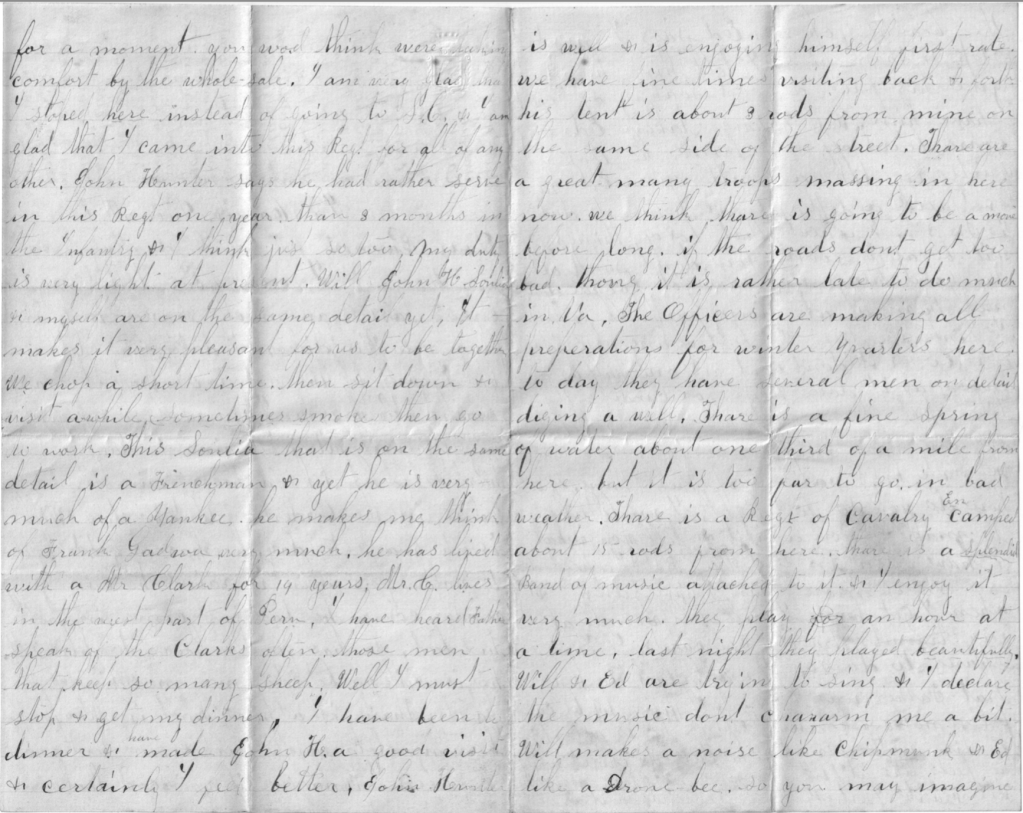 for a moment you wod think were takin
comfort by the whole-sale. I am very glad that
I stoped here instead of going to S.C. & I am
glad that I came into this Regt for all of any
other. John Hunter says he had rather serve
in this Regt one year than 3 months in
the Infantry & I think just so too, My duty
is very light at present. Will John H. Soulia
& myself are on the same detail yet, It
makes it very pleasant for us to be together
We chop a short time. then sit down &
visit awhile, sometimes smoke then go
to work. This Soulia that is on the same
detail is a Frenchman & yet he is very
much of a Yankee. he makes me think
of Frank Gadwa very much. he has lived
with a Mr Clark for 19 years, Mr. C. lives
in the west part of Peru, I have heard Father
speak of the Clarks often, those men
that keep so many sheep. Well I must
stop & get my dinner, I have been to
dinner & have made John H. a good visit
& certainly I feel better, John Hunter
is well & is enjoying himself first rate.
we have fine times visiting back & forth
his tent is about 3 rods from mine on
the same side of the street. Thare are
a great many troops massing in here
now. we think thare is going to be a move
before long. if the roads dont get too
bad. thoug it is rather late to do much
in Va, The Officers are making all
preperations for winter Quarters here.
to day they have several men on detail
diging a well, Thare is a fine spring
of water about one third of a mile from
here. but it is too far to go. in bad
weather. Thare is a Regt of Cavalry Encamped
about 15 rods from here. there is a splendid
Band of music attached to it & I enjoy it
very much. they play for an hour at
a time, last night they played beautifully.
Will & Ed are tryin to sing & I declare
the music dont chararm me a bit.
Will makes a noise like Chipmunk & Ed
like a Drone bee. so you may imagine